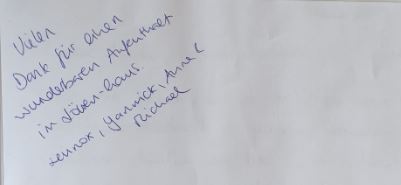 Vielen
Dank für einen
wunderbaren Aufenthalt
im Löwen-haus.
Lennox, Yannick, Anne &
Michael